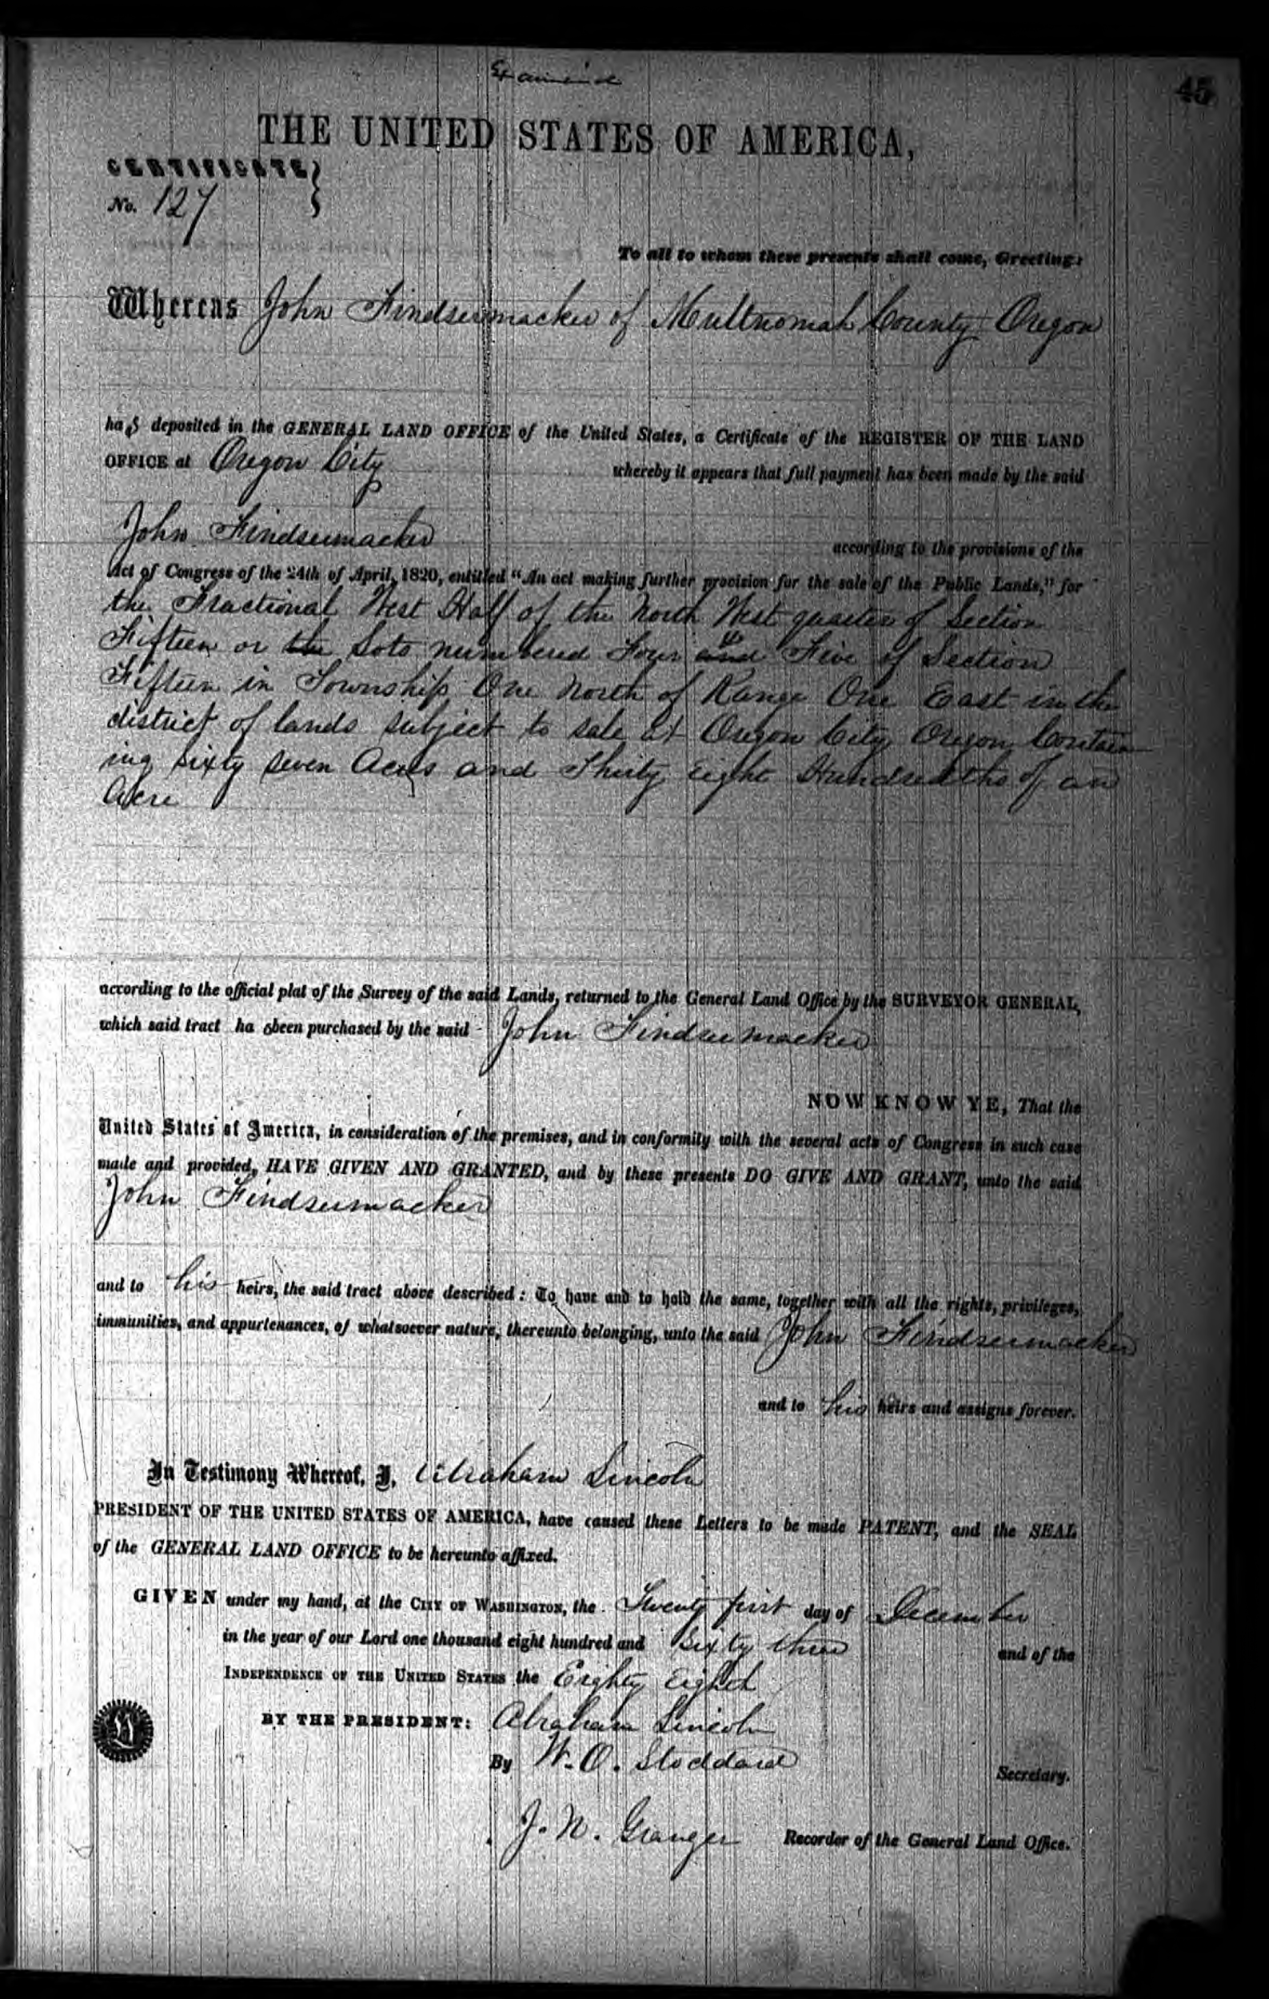 Examined
45
THE UNITED STATES OF AMERICA,
CERTIFICATE }
No. 127
To all to whom these presents shall come, Greeting:
Whereas John Findseumacker of Multnomah County Oregon
has deposited in the GENERAL LAND OFFICE of the United States, a Certificate of the REGISTER OF THE LAND
OFFICE at Oregon City whereby it appears that full payment has been made by the said
John Findseumacker according to the provisions of the
Act of Congress of the 24th of April, 1820, entitled "An act making further provision for the sale of the Public Lands," for
the Fractional West Half of the North West quarter of Section
Fifteen or the Lots numbered Four and Five of Section
Fifteen in Township One North of Range One East in the
district of lands subject to sale at Oregon City Oregon Contain
ing Sixty seven Acres and Thirty eight Hundredths of an
Acre
according to the official plat of the Survey of the said Lands, returned to the General Land Office by the SURVEYOR GENERAL,
which said tract has been purchased by the said John Findseumacker
NOW KNOW YE, That the
United States of America, in consideration of the premises, and in conformity with the several acts of Congress in such case
made and provided, HAVE GIVEN AND GRANTED, and by these presents DO GIVE AND GRANT, unto the said
John Findseumacker
and to his heirs, the said tract above described: To have and to hold the same, together with all the rights, privileges,
immunities, and appurtenances, of whatsoever nature, thereunto belonging, unto the said John Findseumacker
and to his heirs and assigns forever.
In Testimony Whereof, I, Abraham Lincoln
PRESIDENT OF THE UNITED STATES OF AMERICA, have caused these Letters to be made PATENT, and the SEAL
of the GENERAL LAND OFFICE to be hereunto affixed.
GIVEN under my hand, at the CITY OF WASHINGTON, the Twenty first day of December
in the year of our Lord one thousand eight hundred and Sixty three and of the
INDEPENDENCE OF THE UNITED STATES the Eighty Eighth
BY THE PRESIDENT: Abraham Lincoln
By W. O. Stoddard Secretary.
J. N. Granger Recorder of the General Land Office.